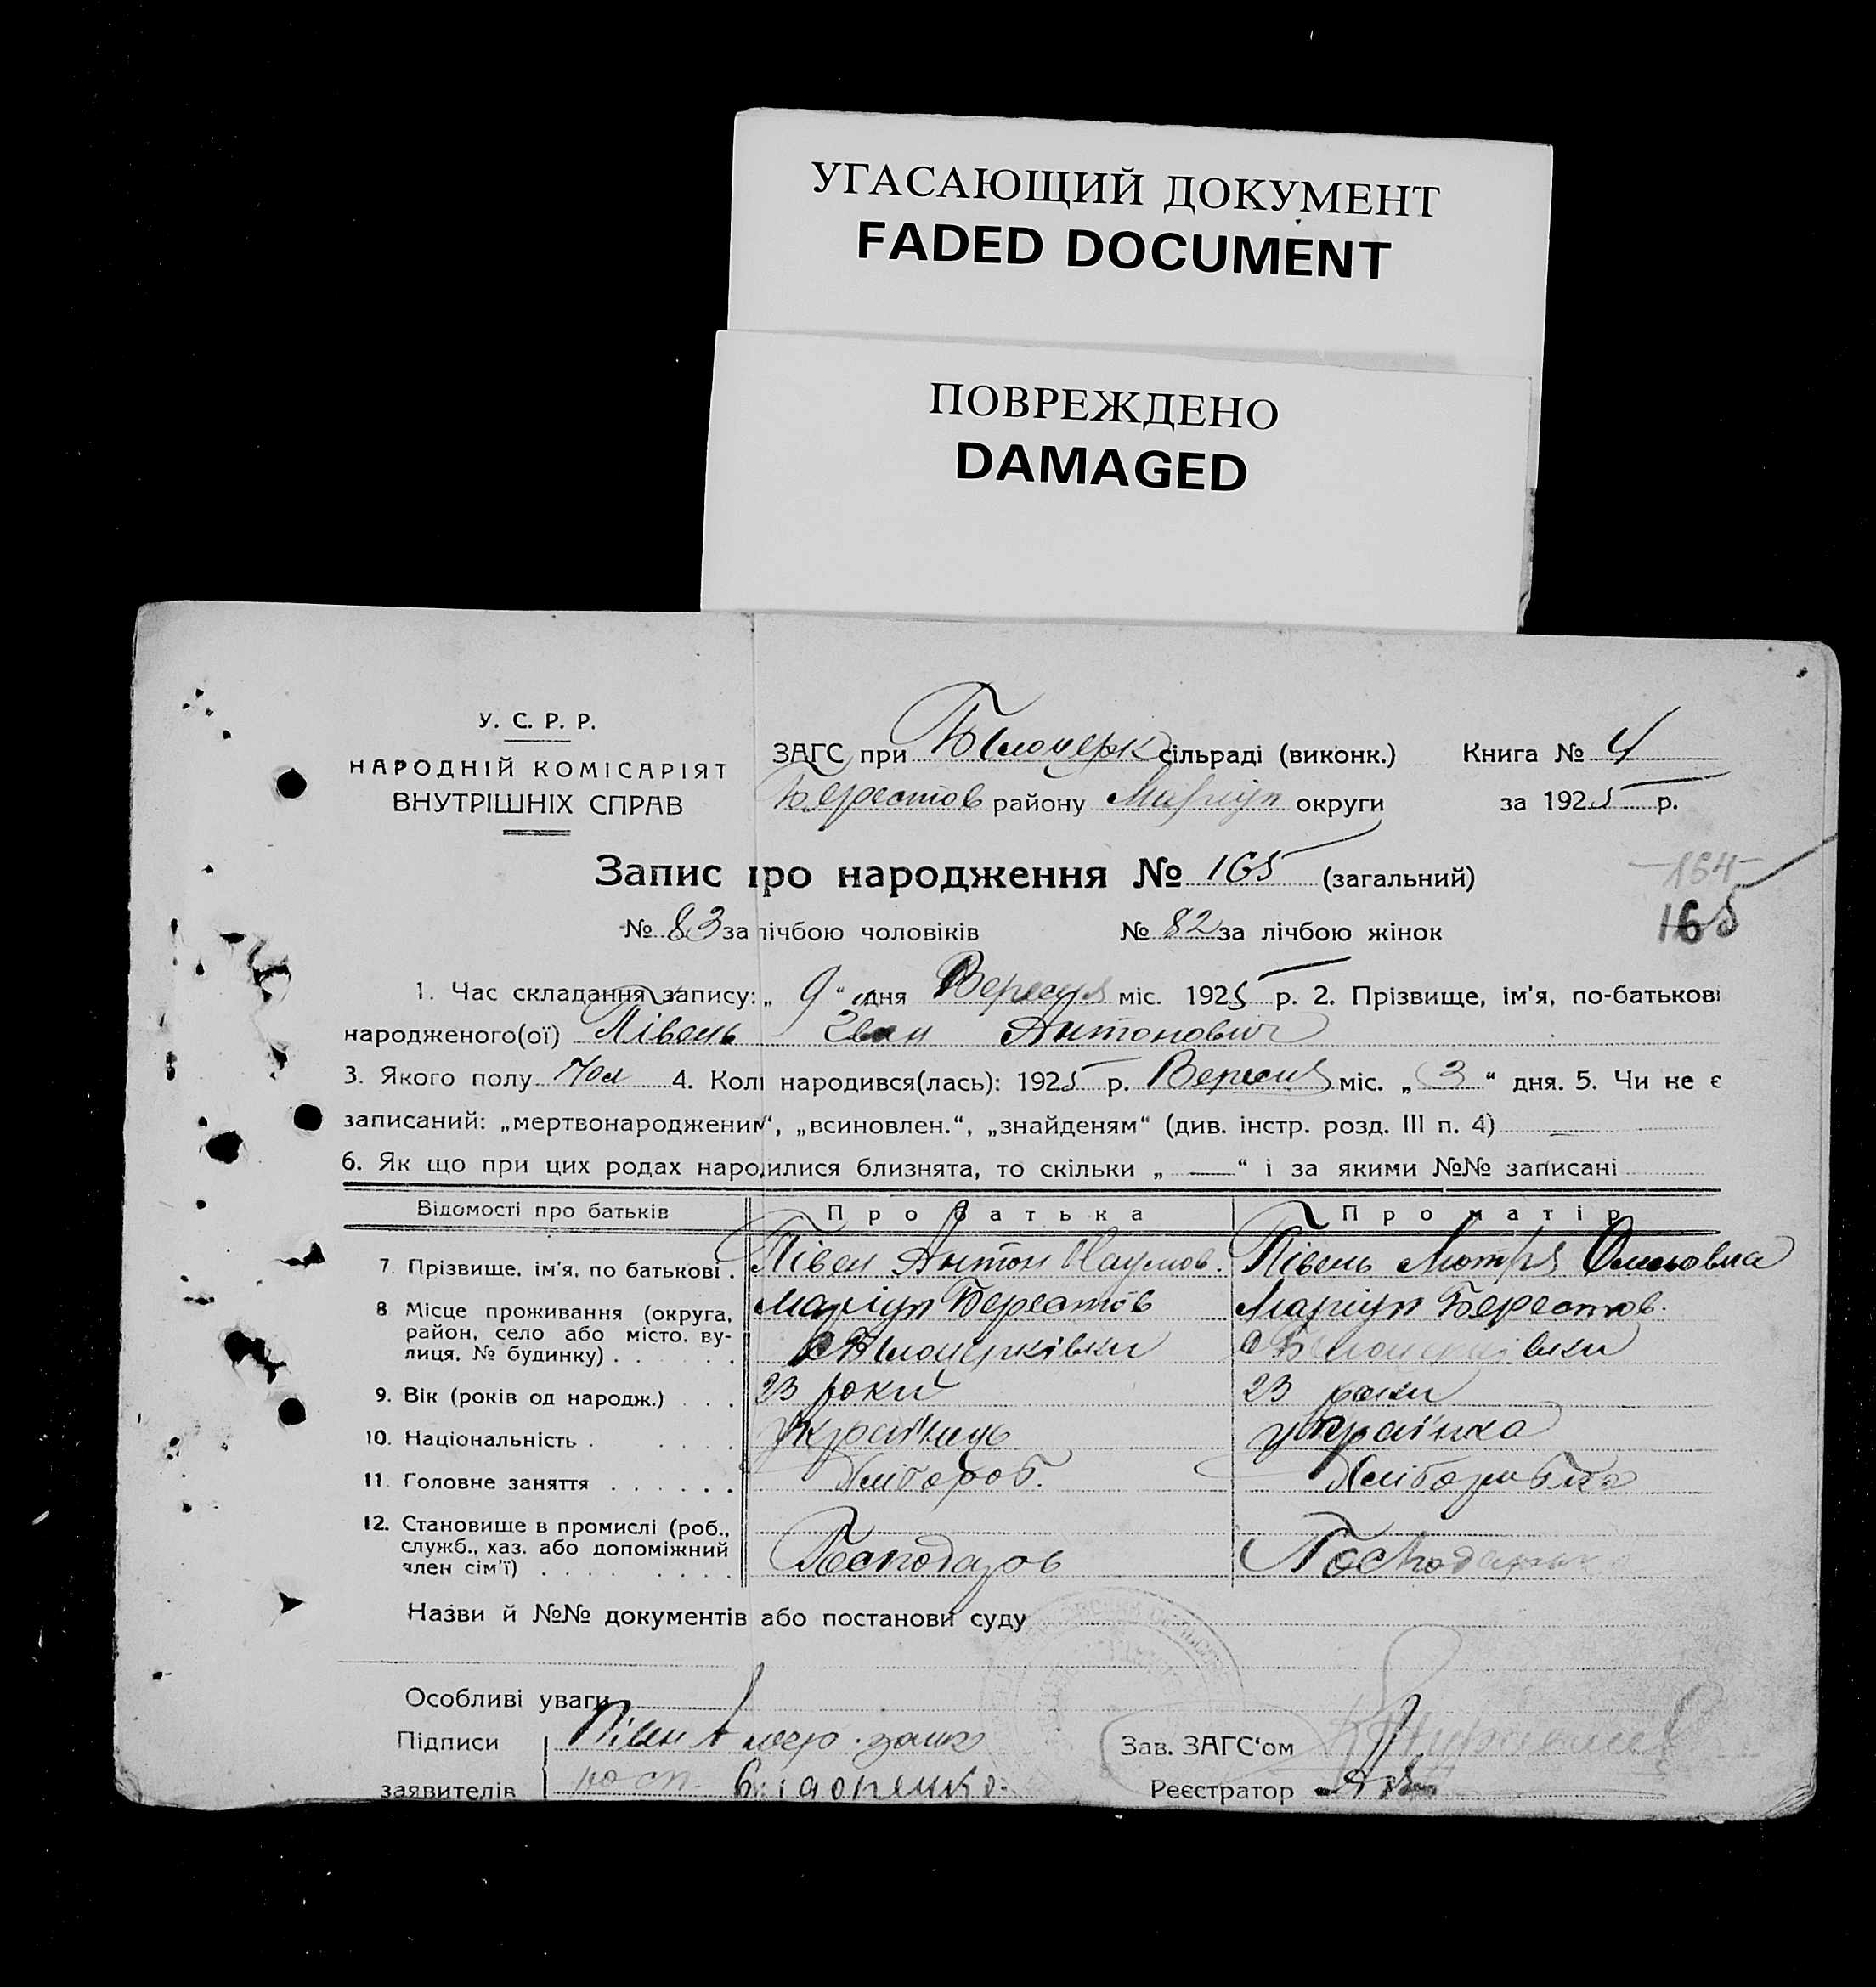 УГАСАЮЩИЙ ДОКУМЕНТ
FADED DOCUMENT
ПОВРЕЖДЕНО
DAMAGED
У. С. Р. Р.
НАРОДНІЙ КОМІСАРІЯТ
ВНУТРІШНІХ СПРАВ
ЗАГС при Білоцерк сільраді (виконк.) Книга № 4
Берестов району Маріуп округи за 1925 р.
Запис про народження № 165 (загальний)
164
165
№ 83 за лічбою чоловіків № 82 за лічбою жінок
1. Час складання запису: „ 9 “ дня Вересня міс. 1925 р. 2. Прізвище, ім'я, по-батькові
народженого(ої) Півень Іван Антонович
3. Якого полу Чол 4. Колі народився(лась): 1925 р. Вересня міс. „ 3 “ дня. 5. Чи не є
записаний: „мертвонародженим“, „всиновлен.“, „знайденям“ (див. інстр. розд. III п. 4) —
6. Як що при цих родах народилися близнята, то скільки „ — “ і за якими №№ записані
Відомості про батьків Про батька Про матір
7. Прізвище, ім'я, по батькові . Півен Антон Наумов. Півень Мотря
8 Місце проживання (округа, район, село або місто, вулиця, № будинку) . . . . . . Маріуп Берестов Маріуп Берестов.
с Білоцерківки с Білоцерківки
9. Вік (років од народж.) . . . 23 роки 23 роки
10. Національність . . . . . . Українець українка
11. Головне заняття . . . . . . Хлібороб. Хліборобка
12. Становище в промислі (роб., служб., хаз. або допоміжний член сім'ї) . . . . . . . . . Господарь Господарька
Назви й №№ документів або постанови суду
Особливі уваги
Підписи Півен А
заявителів
Зав. ЗАГС'ом
Реєстратор